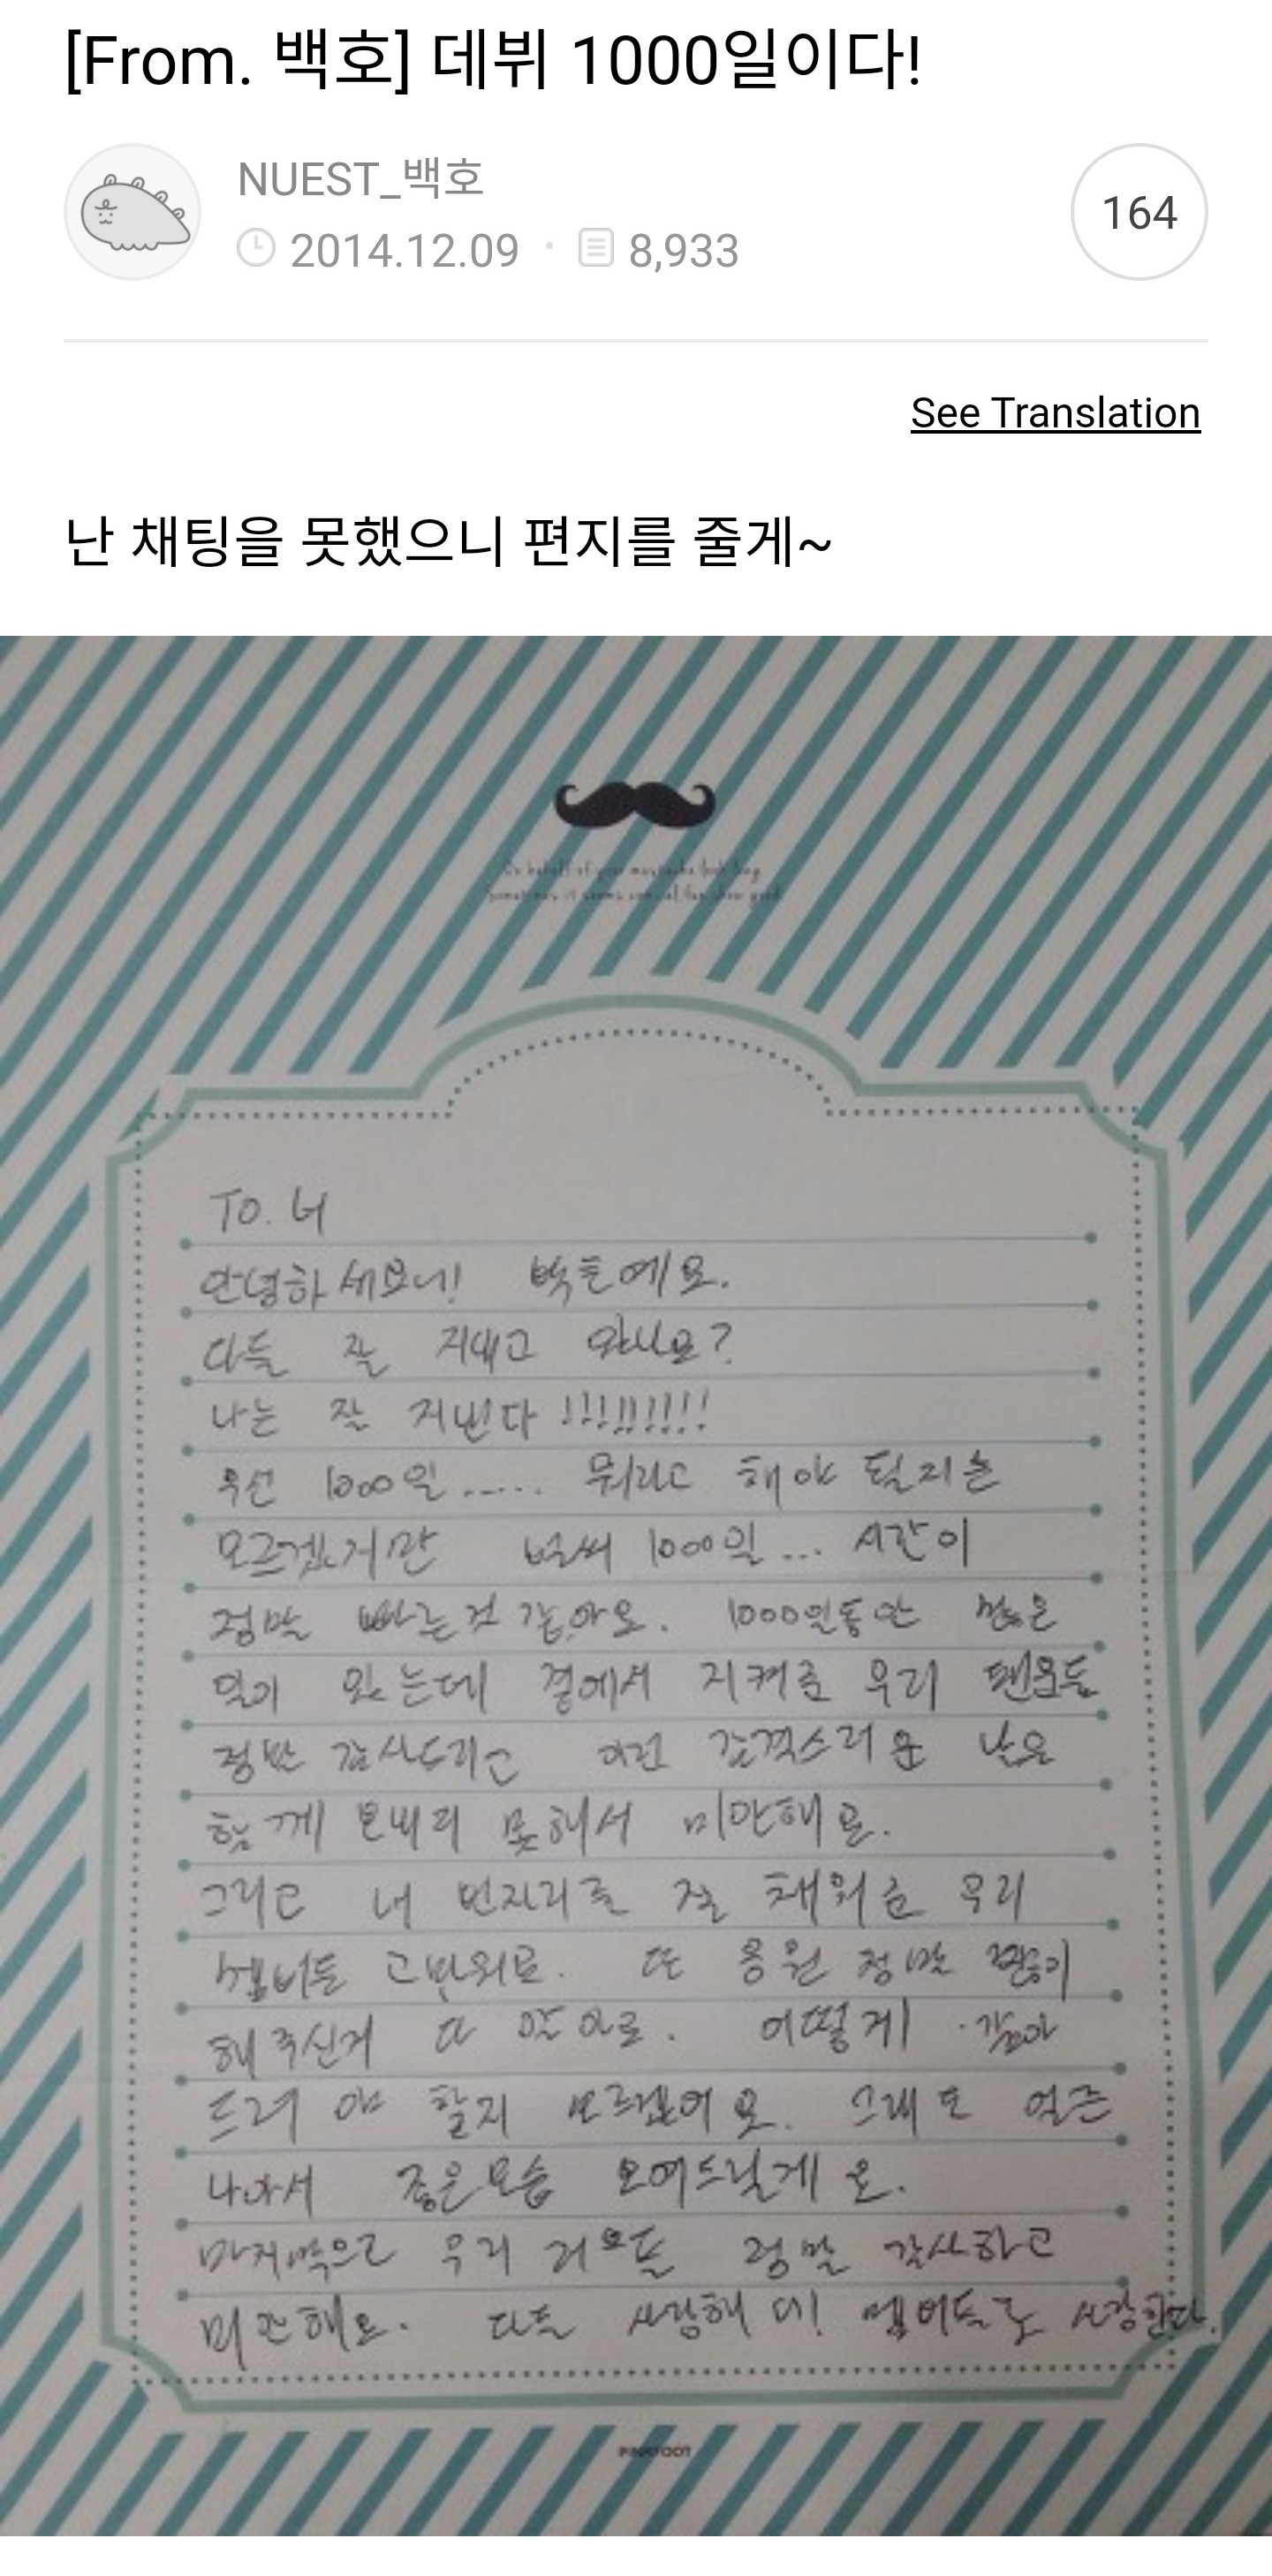 [From. 백호] 데뷔 1000일이다!
NUEST_백호
2014.12.09 · 8,933
164
See Translation
난 채팅을 못했으니 편지를 줄게~
To. 너
안녕하세요니! 백호에요.
다들 잘 지내고 있나요?
나는 잘 지낸다!!!!!!!!!
우선 1000일...... 뭐라고 해야 될지는
모르겠지만 벌써 1000일... 시간이
정말 빠른것 같아요. 1000일동안 많은
일이 있는데 곁에서 지켜준 우리 팬분들
정말 감사드리고 이런 감격스러운 날을
함께 보내지 못해서 미안해요.
그리고 내 빈자리를 잘 채워준 우리
멤버들 고마워요. 또 응원 정말 많이
해주신거 다 알아요. 어떻게 갚아
드려야 할지 모르겠어요. 그래도 얼른
나아서 좋은모습 보여드릴게요.
마지막으로 우리 러브들 정말 감사하고
미안해요. 다들 사랑해 네! 멤버들도 사랑한다.